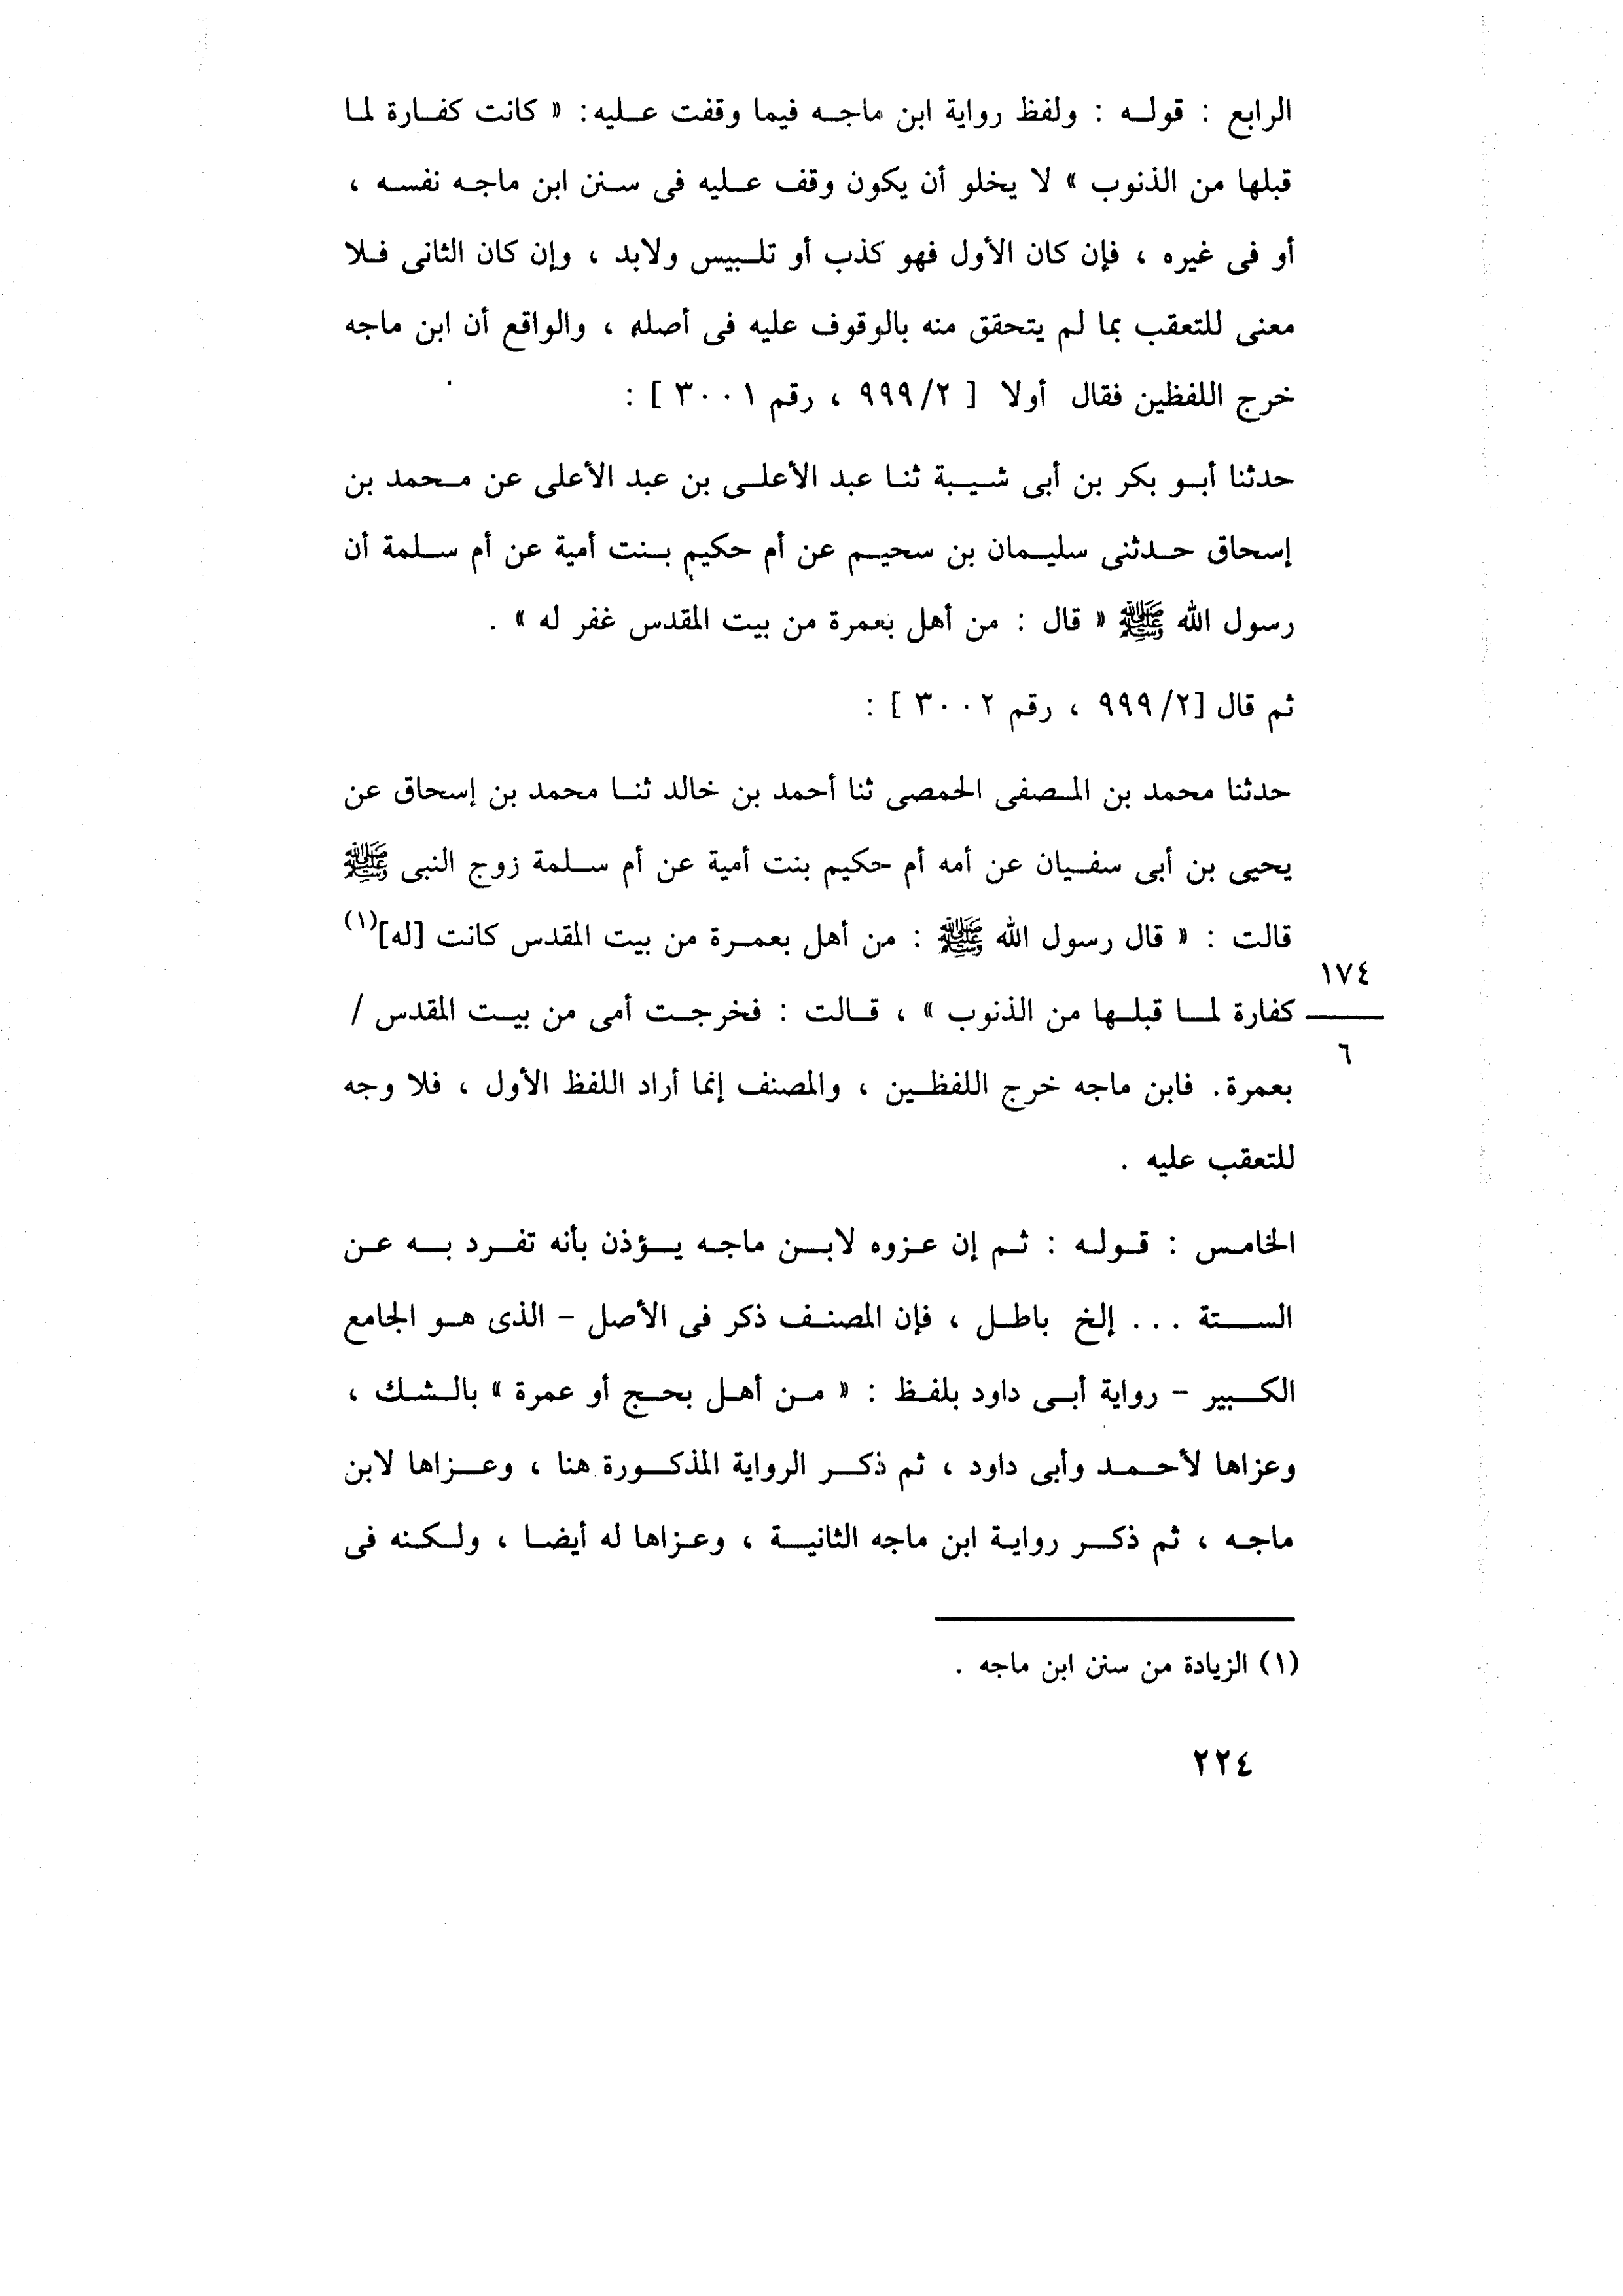 الرابع : قوله : ولفظ رواية ابن ماجه فيما وقفت عليه: « كانت كفارة لما
قبلها من الذنوب » لا يخلو أن يكون وقف عليه فى سنن ابن ماجه نفسه ،
أو فى غيره ، فإن كان الأول فهو كذب أو تلبيس ولابد ، وإن كان الثانى فلا
معنى للتعقب بما لم يتحقق منه بالوقوف عليه فى أصله ، والواقع أن ابن ماجه
خرج اللفظين فقال أولا [ ٢/ ٩٩٩ ، رقم ٣٠٠١ ] :
حدثنا أبو بكر بن أبى شيبة ثنا عبد الأعلى بن عبد الأعلى عن محمد بن
إسحاق حدثنى سليمان بن سحيم عن أم حكيم بنت أمية عن أم سلمة أن
رسول الله ﷺ « قال : من أهل بعمرة من بيت المقدس غفر له » .
ثم قال [٢/ ٩٩٩ ، رقم ٣٠٠٢ ] :
حدثنا محمد بن المصفى الحمصى ثنا أحمد بن خالد ثنا محمد بن إسحاق عن
يحيى بن أبى سفيان عن أمه أم حكيم بنت أمية عن أم سلمة زوج النبى ﷺ
قالت : « قال رسول الله ﷺ : من أهل بعمرة من بيت المقدس كانت [له](١)
١٧٤
كفارة لما قبلها من الذنوب » ، قالت : فخرجت أمى من بيت المقدس /
٦
بعمرة. فابن ماجه خرج اللفظين ، والمصنف إنما أراد اللفظ الأول ، فلا وجه
للتعقب عليه .
الخامس : قوله : ثم إن عزوه لابن ماجه يؤذن بأنه تفرد به عن
الستة ... إلخ باطل ، فإن المصنف ذكر فى الأصل - الذى هو الجامع
الكبير - رواية أبى داود بلفظ : « من أهل بحج أو عمرة » بالشك ،
وعزاها لأحمد وأبى داود ، ثم ذكر الرواية المذكورة هنا ، وعزاها لابن
ماجه ، ثم ذكر رواية ابن ماجه الثانية ، وعزاها له أيضا ، ولكنه فى
(١) الزيادة من سنن ابن ماجه .
٢٢٤